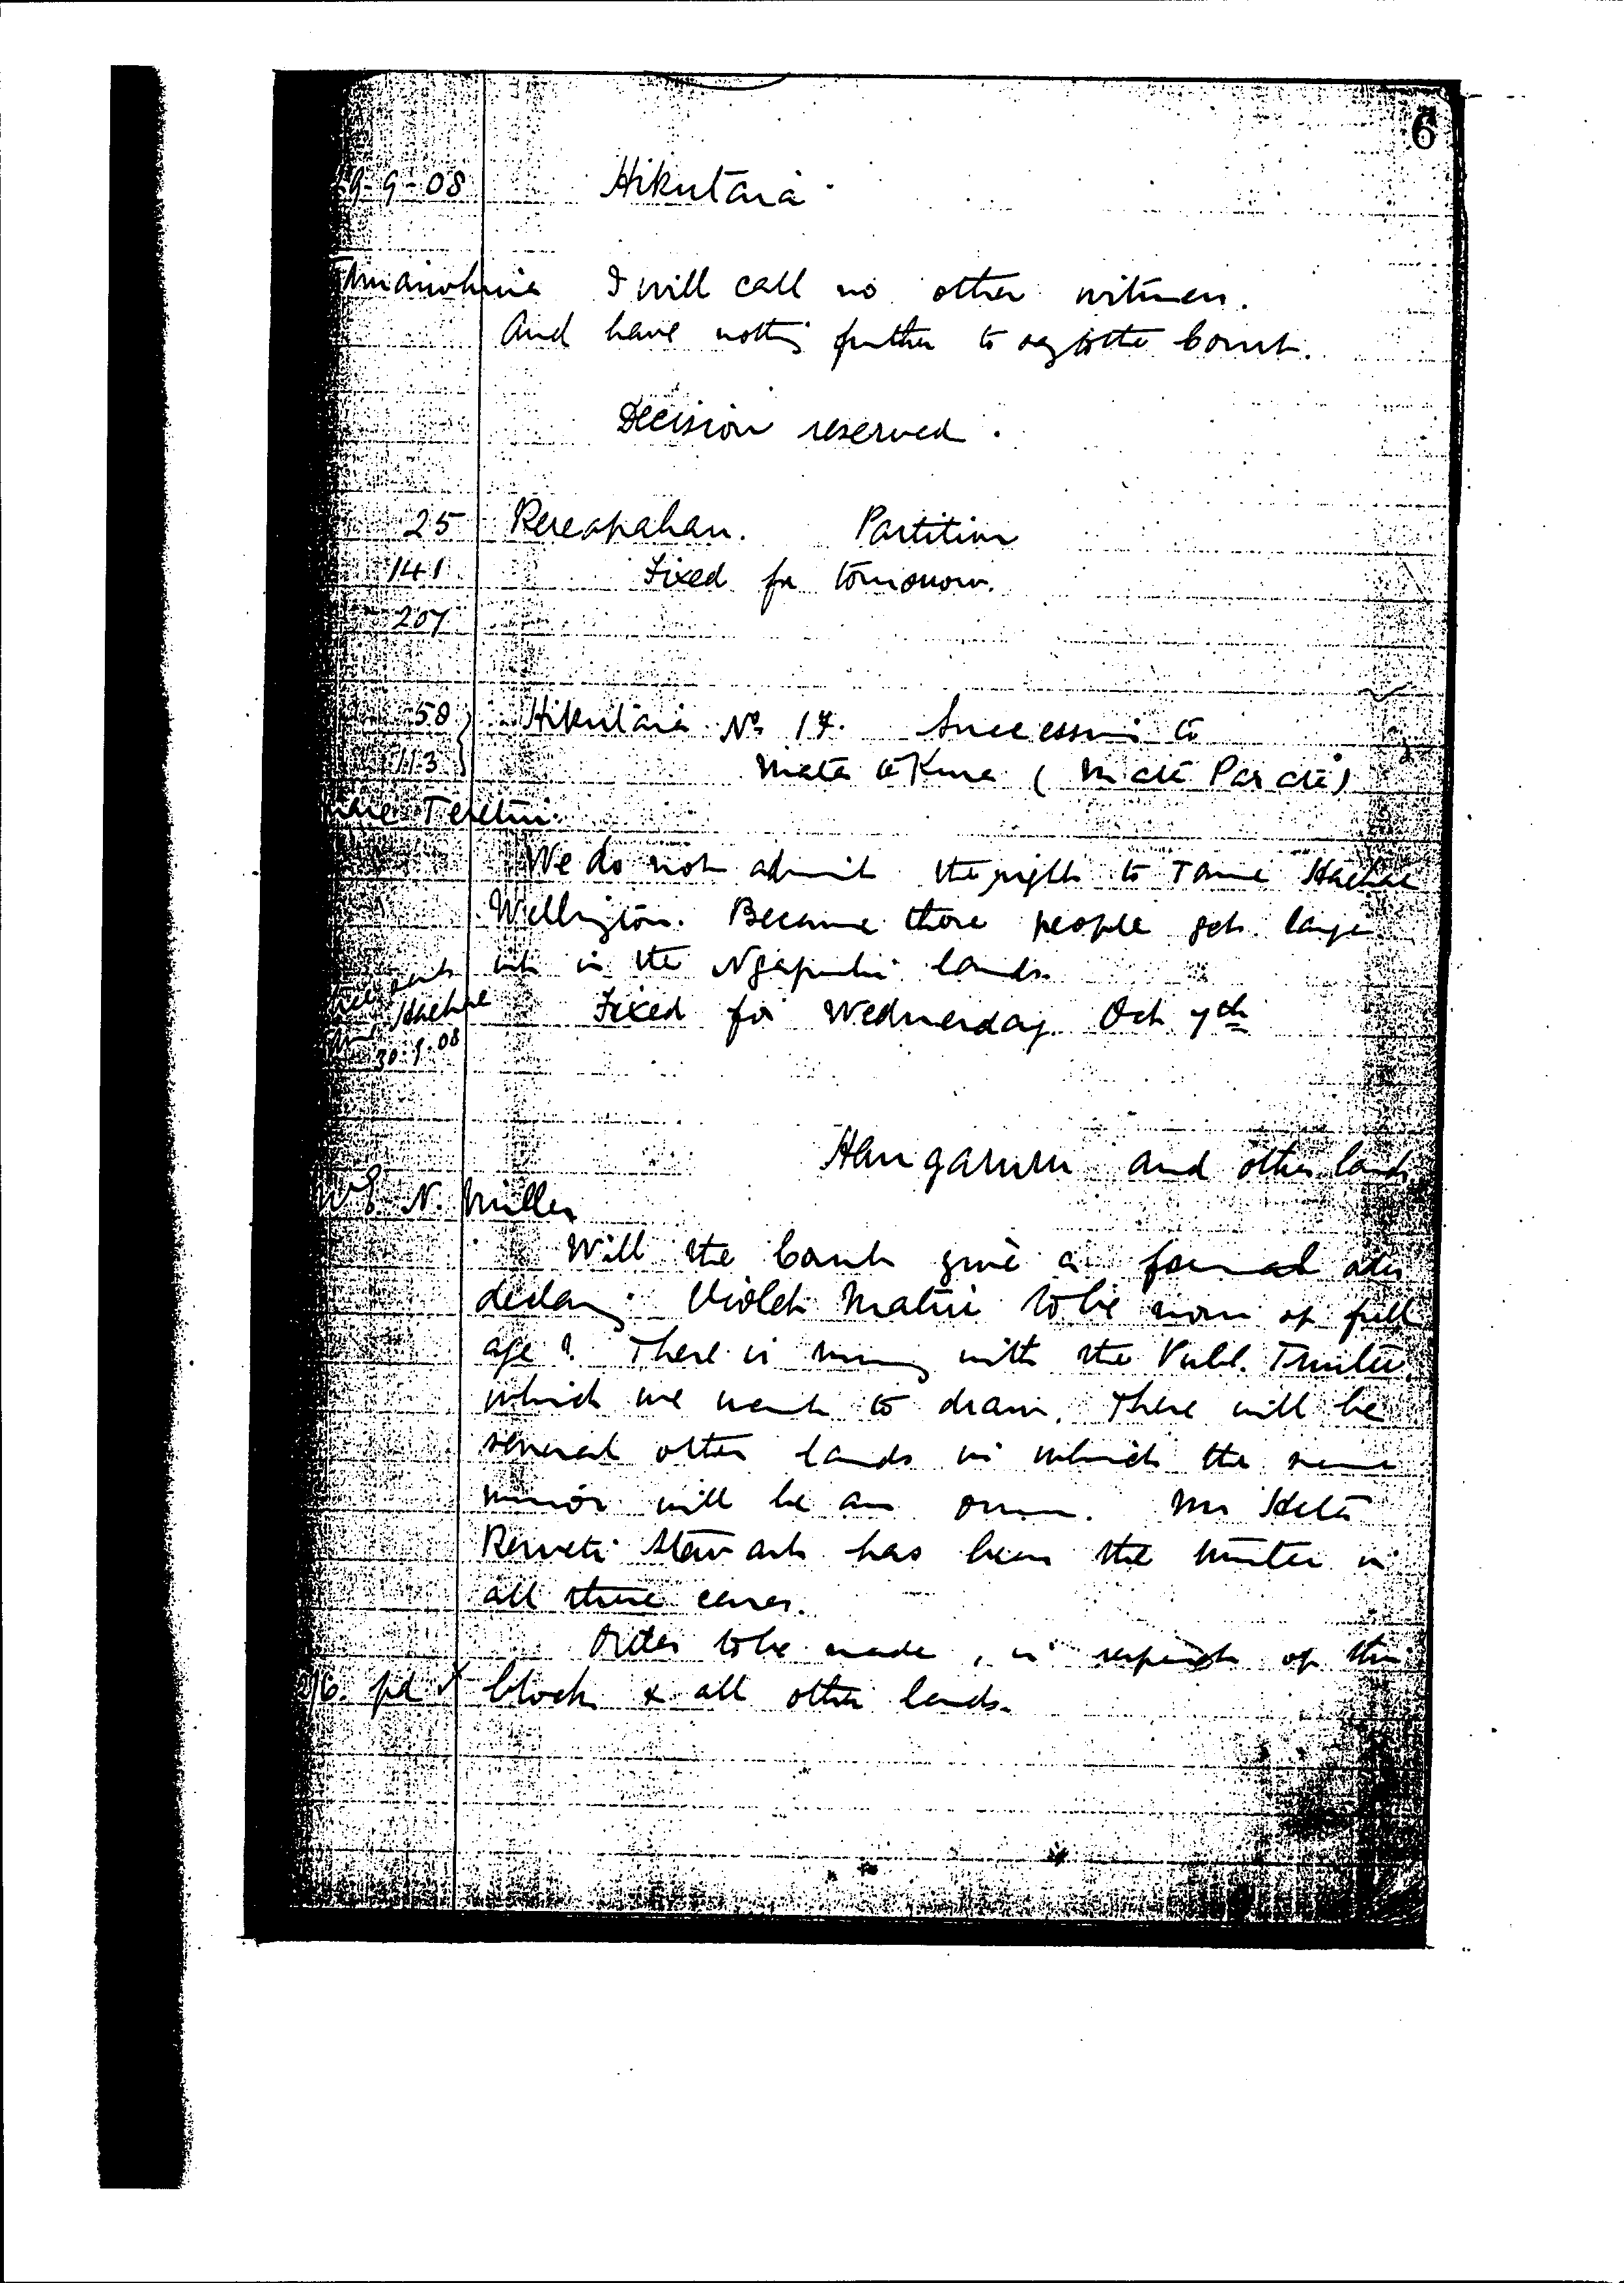 6
9-9-08 Hikutaia
I will call no other witness.
And have nothing further to say to the Court.
Decision reserved.
25 Rereapahau. Partition
141 Fixed for tomorrow.
207
58 Hikutaia No 17. Succession to
113 Mata te Kura (Mata Paraté)
Teretiu
We do not admit the right to Tame Haehae
Wellington. Because these people get large
ints in the Ngapuhi lands.
Haehae
Fixed for Wednesday Oct 7th
30.9.08
and other lands
N. Miller
Will the Court give a formal order
declaring Violet Matiu to be now of full
age? There is money with the Publ. Trustee
which we want to draw. There will be
several other lands in which the same
minor will be an owner. Mr Heta
Renveti Stewart has been the trustee in
all these cases.
Order to be made, in respect of this
2/6. pd block & all other lands.